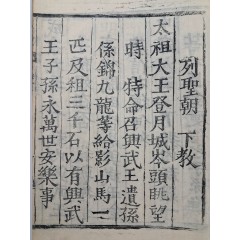 列聖朝 下教
太祖大王登月城岑頭眺望
時 特命召興武王遺孫
係錦九龍等給影山馬一
匹及租三千石以有興武
王子孫永萬世安樂事